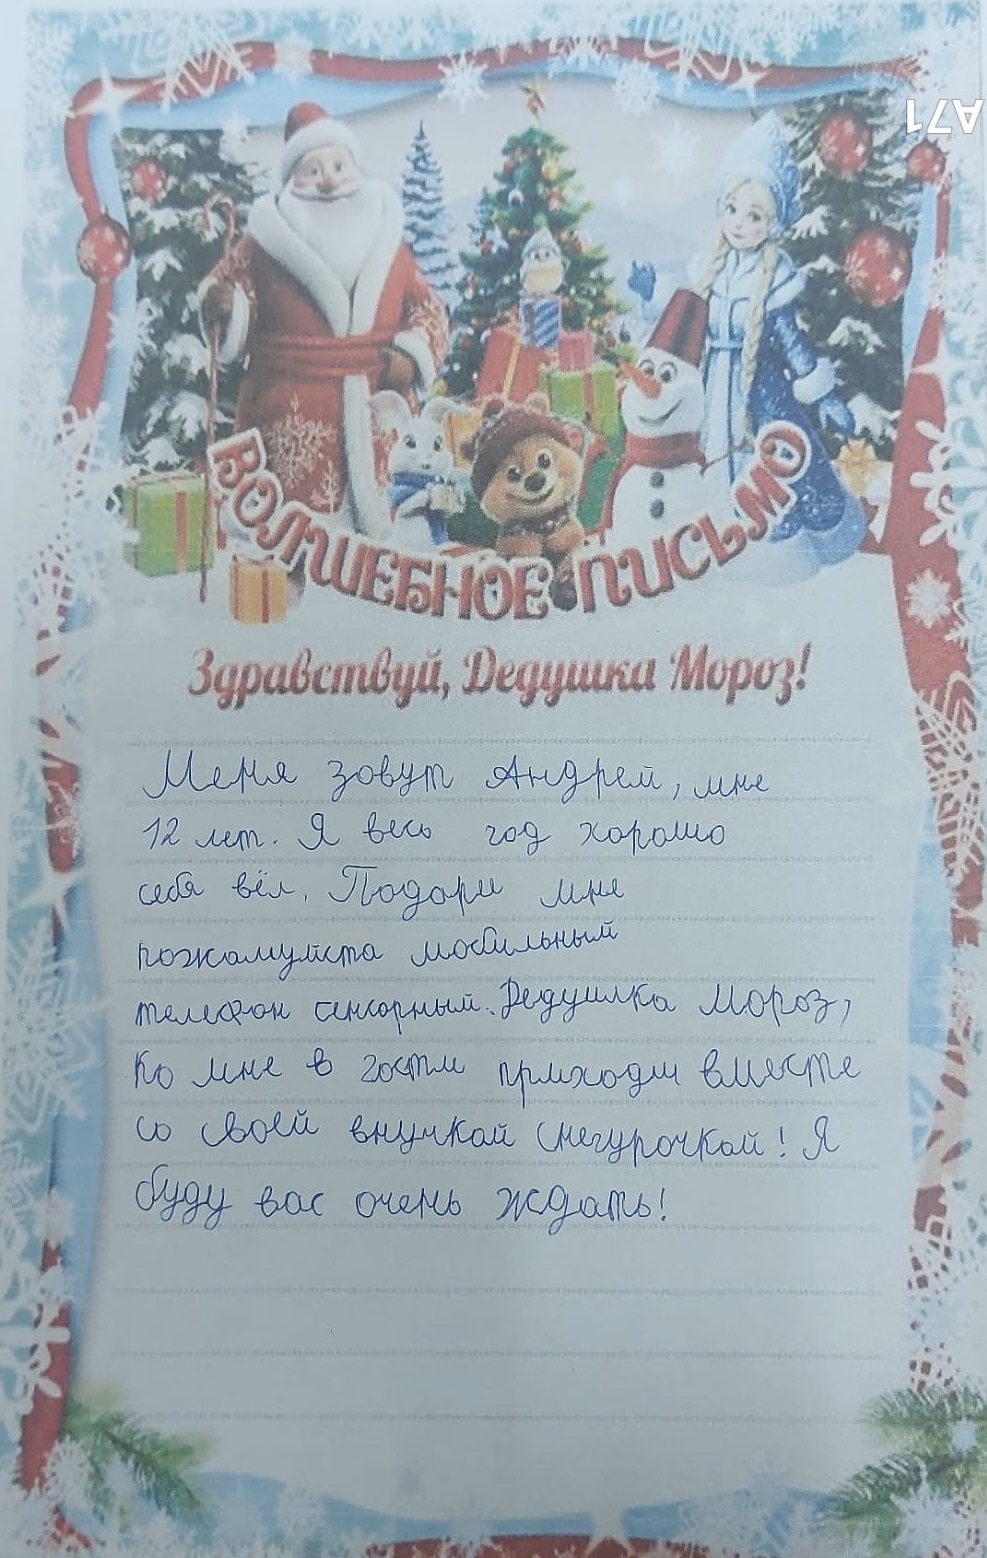 A71
ВОЛШЕБНОЕ ПИСЬМО
Здравствуй, Дедушка Мороз!
Меня зовут Андрей, мне
12 лет. Я весь год хорошо
себя вёл. Подари мне
пожалуйста мобильный
телефон сенсорный. Дедушка Мороз,
ко мне в гости приходи вместе
со своей внучкой Снегурочкой! Я
буду вас очень ждать!